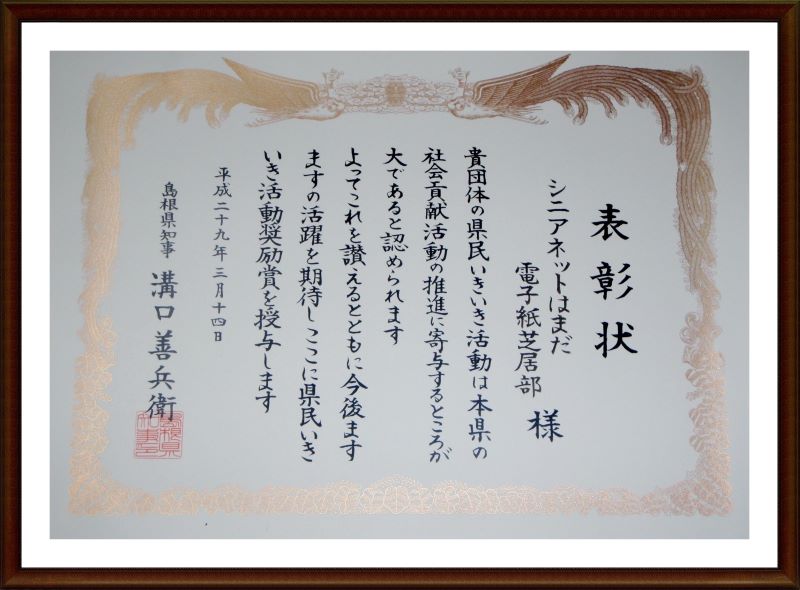 表彰状
シニアネットはまだ
電子紙芝居部 様
貴団体の県民いきいき活動は本県の
社会貢献活動の推進に寄与するところが
大であると認められます
よってこれを讃えるとともに今後ます
ますの活躍を期待しここに県民いき
いき活動奨励賞を授与します
平成二十九年三月十四日
島根県知事 溝口善兵衛
島根県
知事印